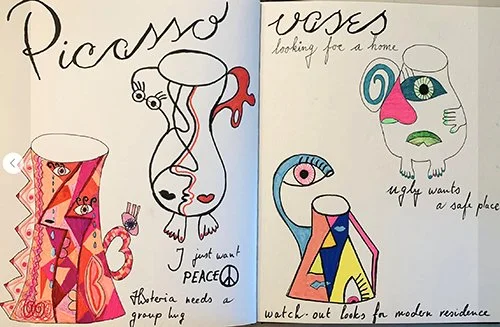 Picasso vases
looking for a home
I just want
PEACE
Hysteria needs a
group hug
ugly wants
a safe place
watch-out looks for modern residence